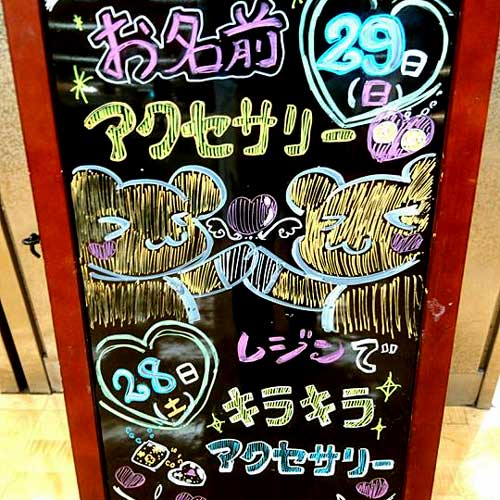 お名前
29日
(日)
アクセサリー
28日
(土)
レジンで
キラキラ
アクセサリー